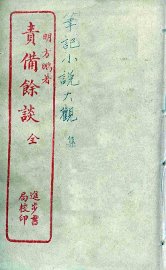 筆記小說大觀
集
明方鵬著
責備餘談 全
進步書
局校印